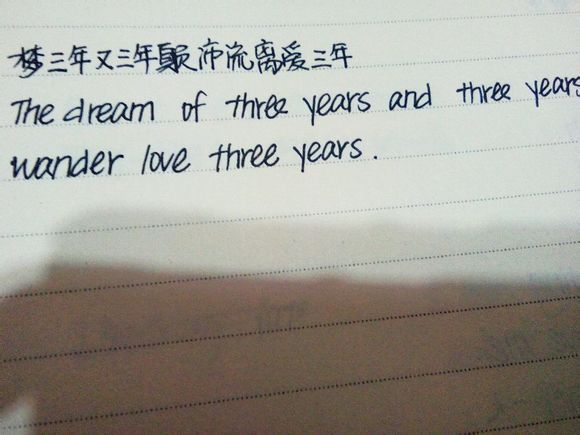 梦三年又三年颠沛流离爱三年
The dream of three years and three years
wander love three years.